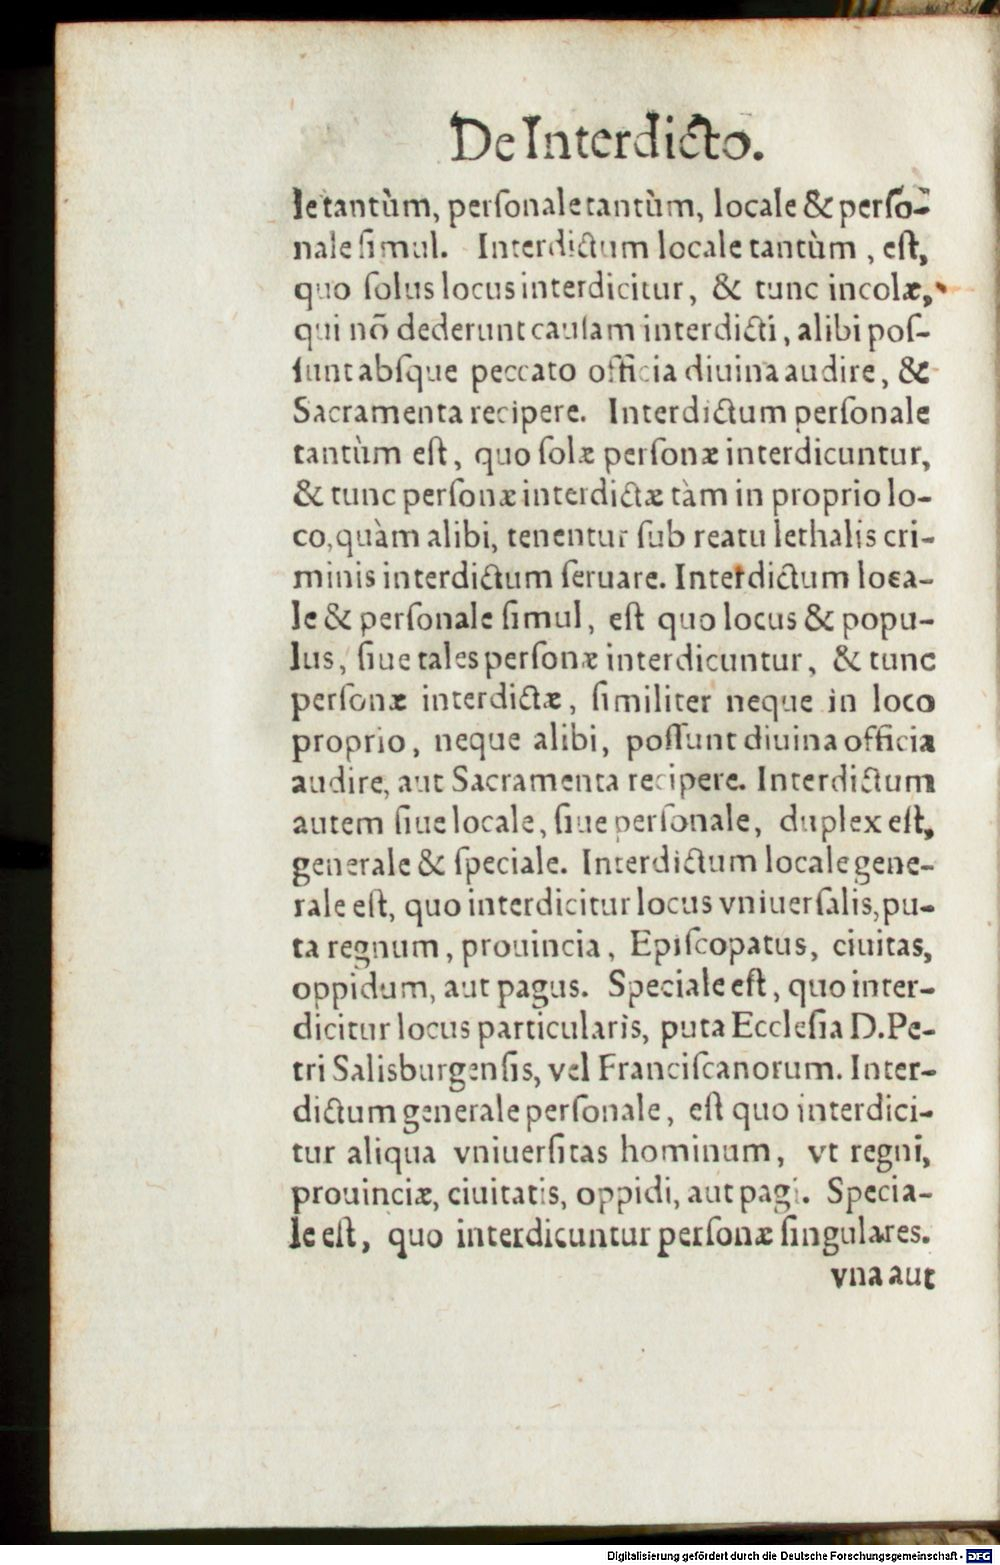 De Interdicto.
le tantùm, perſonale tantùm, locale & perſo-
nale ſimul. Interdictum locale tantùm, eſt,
quo ſolus locus interdicitur, & tunc incolæ,
qui nõ dederunt cauſam interdicti, alibi poſ-
ſunt abſque peccato officia diuina audire, &
Sacramenta recipere. Interdictum perſonale
tantùm eſt, quo ſolæ perſonæ interdicuntur,
& tunc perſonæ interdictæ tàm in proprio lo-
co, quàm alibi, tenentur ſub reatu lethalis cri-
minis interdictum ſeruare. Interdictum loca-
le & perſonale ſimul, eſt quo locus & popu-
lus, ſiue tales perſonæ interdicuntur, & tunc
perſonæ interdictæ, ſimiliter neque in loco
proprio, neque alibi, poſſunt diuina officia
audire, aut Sacramenta recipere. Interdictum
autem ſiue locale, ſiue perſonale, duplex eſt,
generale & ſpeciale. Interdictum locale gene-
rale eſt, quo interdicitur locus vniuerſalis, pu-
ta regnum, prouincia, Epiſcopatus, ciuitas,
oppidum, aut pagus. Speciale eſt, quo inter-
dicitur locus particularis, puta Eccleſia D. Pe-
tri Salisburgenſis, vel Franciſcanorum. Inter-
dictum generale perſonale, eſt quo interdici-
tur aliqua vniuerſitas hominum, vt regni,
prouinciæ, ciuitatis, oppidi, aut pagi. Specia-
le eſt, quo interdicuntur perſonæ ſingulares.
vna aut
Digitalisierung gefördert durch die Deutsche Forschungsgemeinschaft - DFG